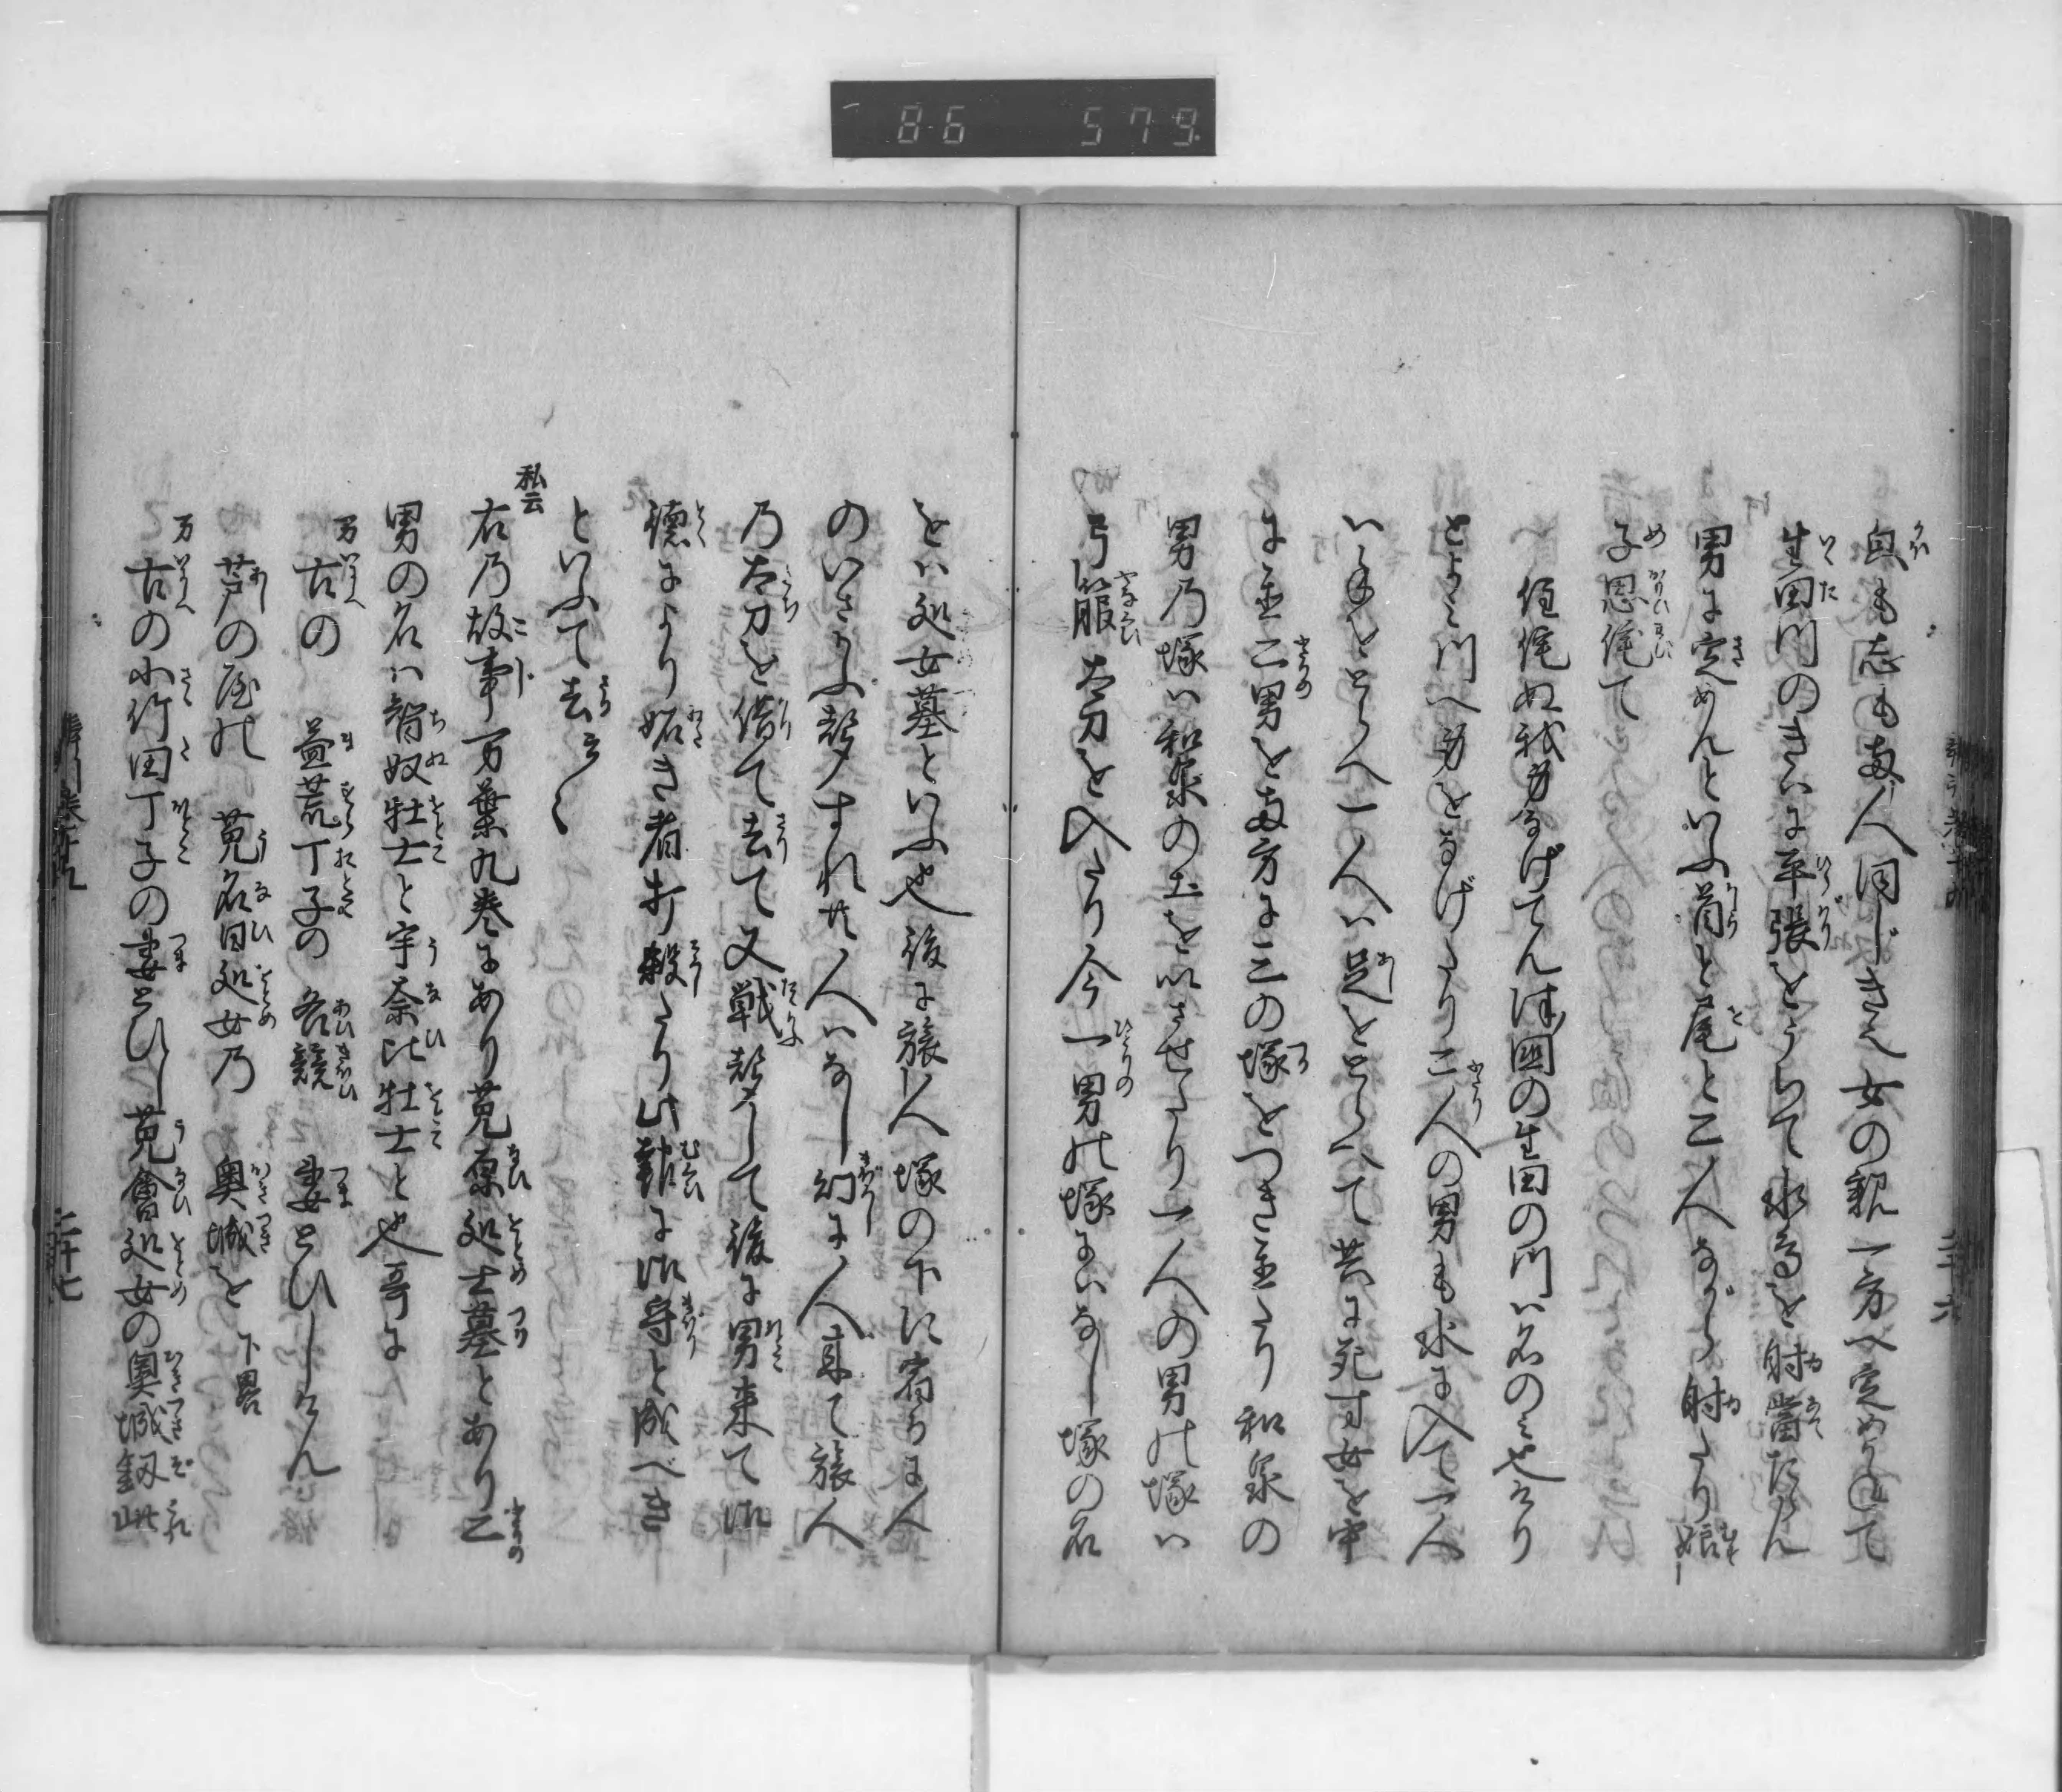 86 579
皃も志も両人同じきゆへ女の親一方へ定めかねて
生田川のきはに平張をうちて水鳥を射當たらん
男に定めんといふ首と尾と二人ながら射たり娘
子思侘て
住侘ぬ我身なげてん津國の生田の川は名のみ也けり
とよみ川へ身をなげたり二人の男も水に入て一人
は手をとらへ一人は足をとらへて共に死す女を中
に並二男を両方に三の塚をつき並たり和泉の
男乃塚は和泉の土を以させたり一人の男の塚は
弓箙太刀を入たり今一男の塚にはなし塚の名
をは処女墓といふ也後に旅人塚の下に宿るに人
のいさかふ声すれ共人はなし幻に人来て旅人
乃太刀を借て去て又戦声して後に男来て御
徳により妬き者打殺たり此報に御守と成べき
といふて去云〱
私云
右乃故事万葉九巻にあり菟原処士墓とあり二
男の名は智奴牡士と宇奈比牡士と也哥に
万 古の 益荒丁子の 各競 妻とひしけん
芦の屋の 菟名日処女乃 奥城を 下畧
万 古の小竹田丁子の妻とひし菟會処女の奥城釼此
二十七